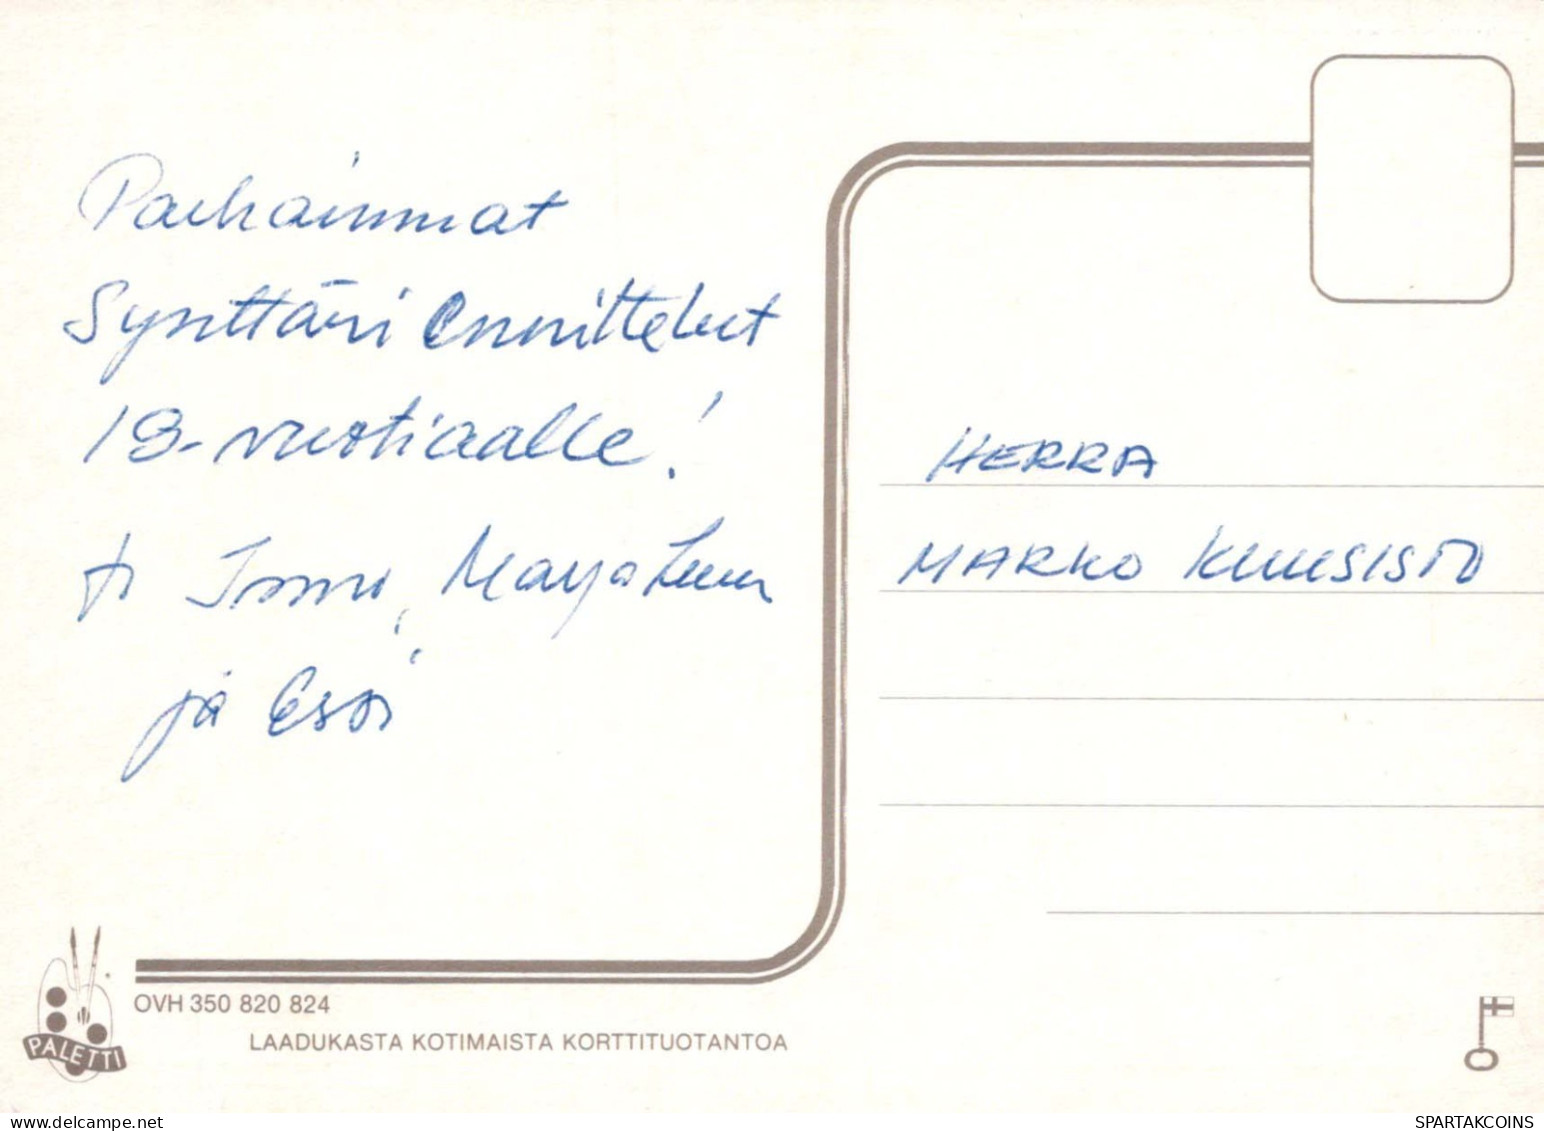 Parhaimmat
Synttäri Onnittelut
18-vuotiaalle!
ja Essi
HERRA
MARKO KUUSISTO
OVH 350 820 824
LAADUKASTA KOTIMAISTA KORTTITUOTANTOA
PALETTI
www.delcampe.net
SPARTAKCOINS